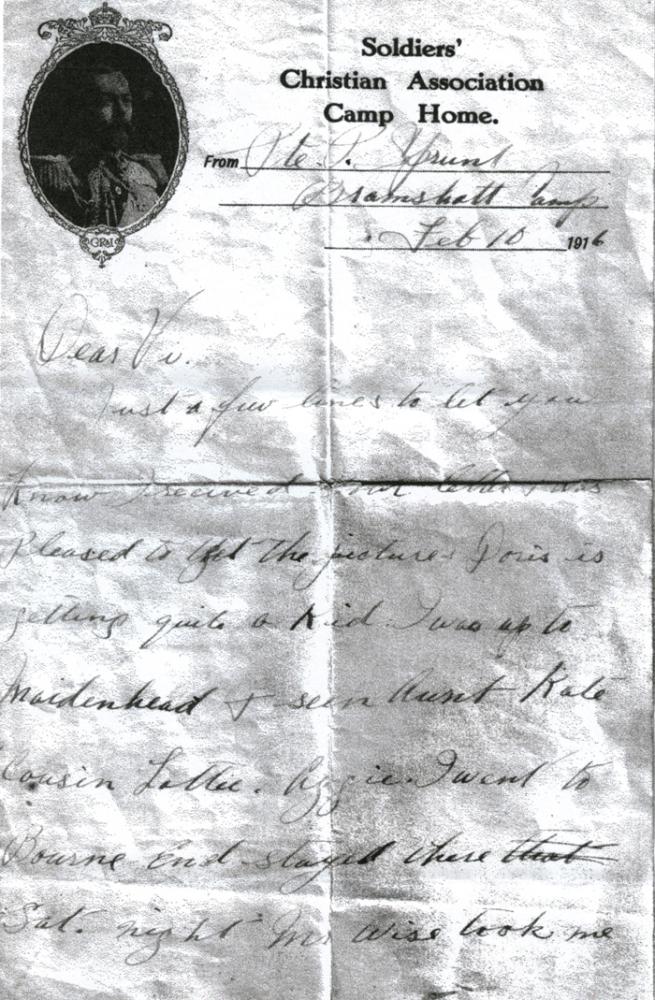 Soldiers'
Christian Association
Camp Home.
From Pte. P.
Bramshott Camp
Feb 10 1916
GRI
Dear Vi.
Just a few lines to let you
Know received your letter & was
Pleased to get the pictures Doris is
getting quite a Kid. I was up to
Maidenhead & seen Aunt Kate
Cousin Lottie. Aggie. I went to
Bourne End stayed there that
Sat. night Mr Wise took me